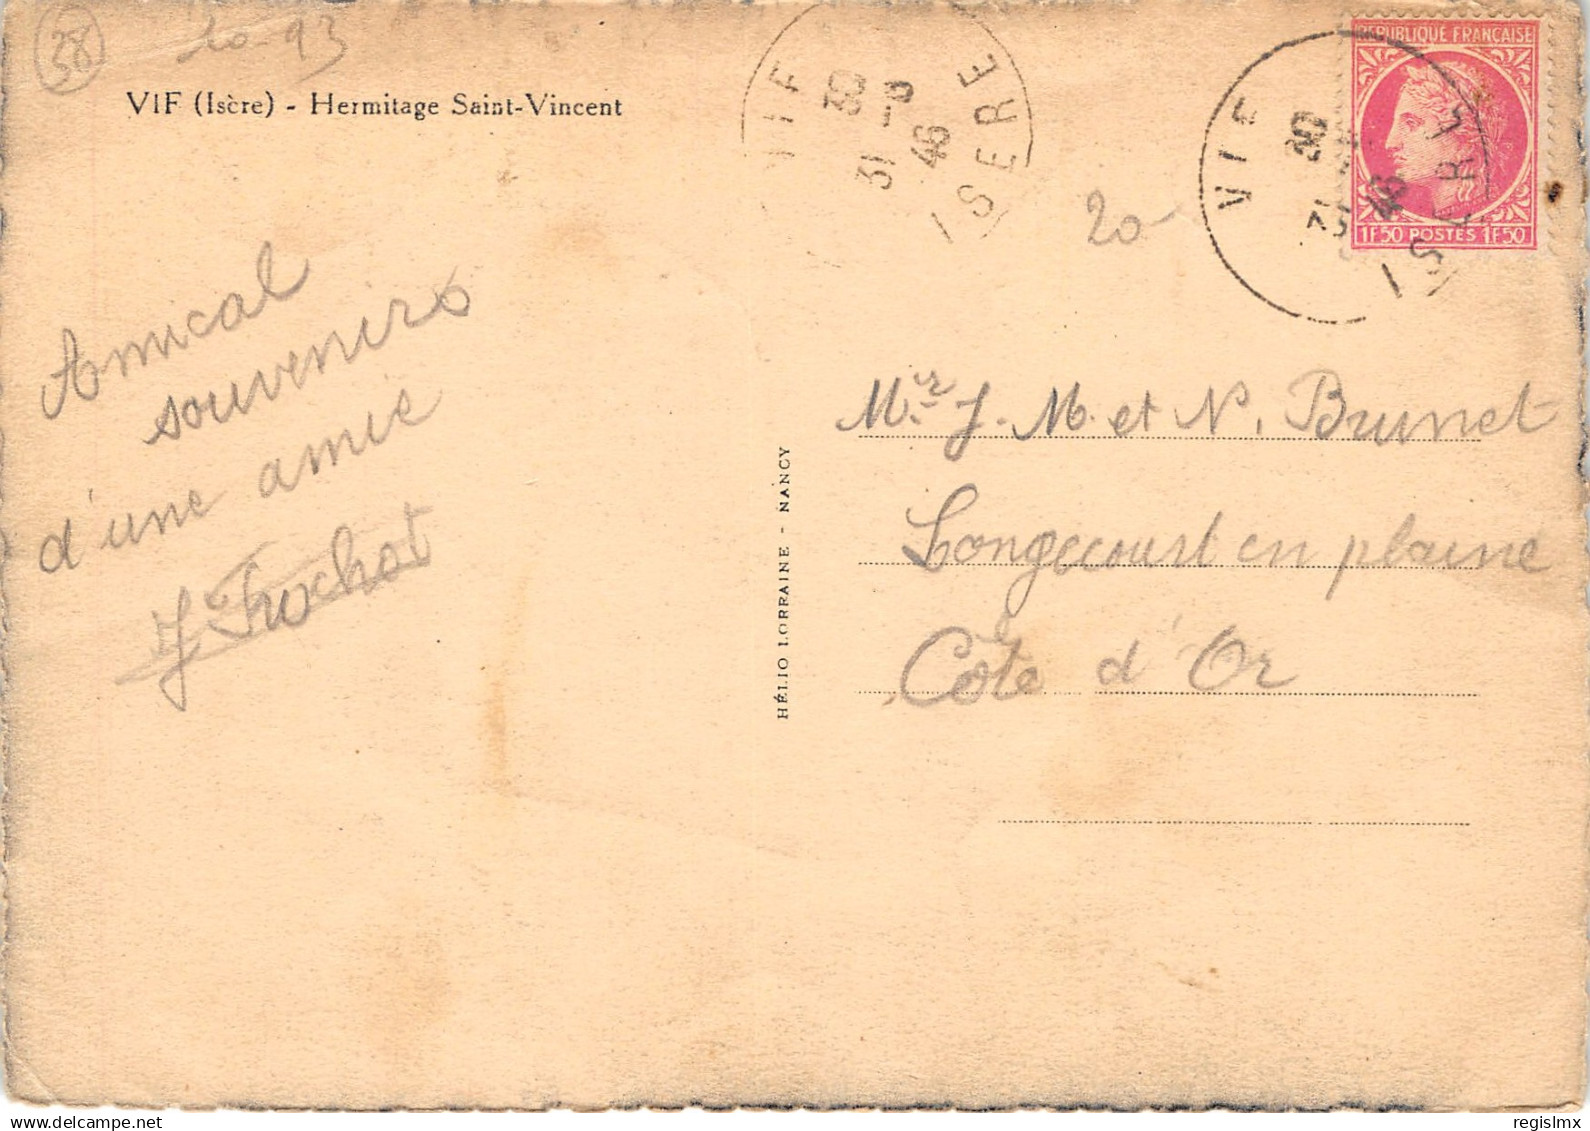 38
20-93
VIF (Isère) - Hermitage Saint-Vincent
VIF
30
31 -8
46
ISERE
VIF
30
31
46
ISERE
REPUBLIQUE FRANÇAISE
1F50 POSTES 1F50
20-
Amical
souvenirs
d'une amie
Mr. J. M. et N. Brunet
Longecourt en plaine
Côte d'Or
HÉLIO LORRAINE - NANCY
regislmx